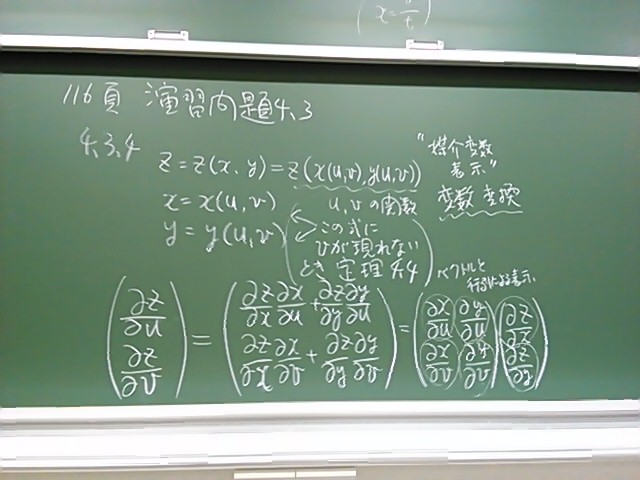 (x=u/t)
116頁 演習問題4.3
4.3.4
z = z(x, y) = z(x(u,v), y(u,v))
"媒介変数表示"
x = x(u,v)
u, v の関数
変数変換
y = y(u,v)
この式に
vが現れない
とき 定理 4.4
ベクトルと
行列による表示
(∂z/∂u ∂z/∂v) = (∂z/∂x ∂x/∂u + ∂z/∂y ∂y/∂u ∂z/∂x ∂x/∂v + ∂z/∂y ∂y/∂v) = (∂x/∂u ∂y/∂u ∂x/∂v ∂y/∂v)(∂z/∂x ∂z/∂y)